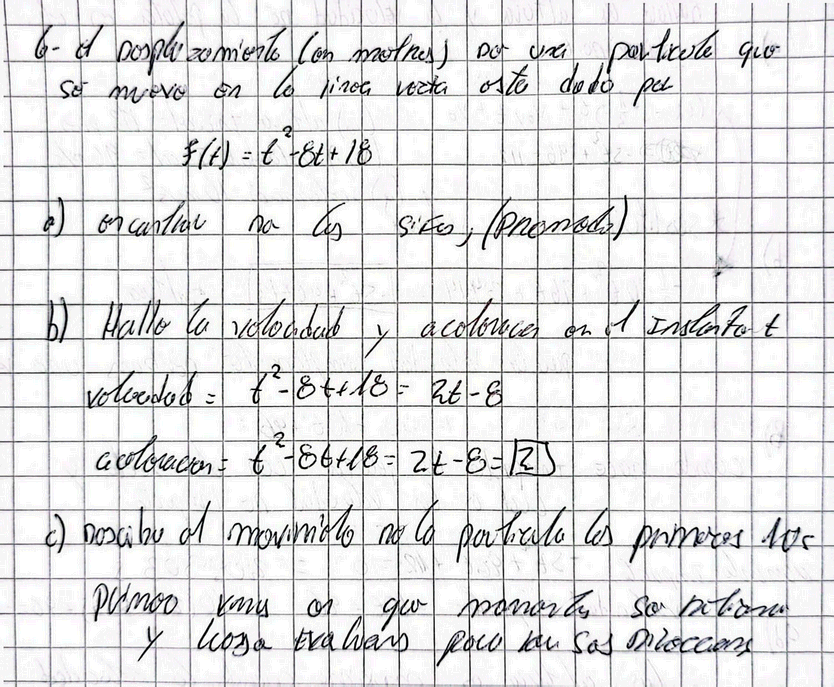 6- el Desplazamiento (en metros) de una particula que
se mueve en la linea recta esta dado por
f(t) = t²-8t+18
a) encontrar (Promedio)
b) Halle la velocidad y aceleracion en el Instante t
velocidad = t²-8t+18 = 2t-8
aceleracion = t²-8t+18 = 2t-8 = 2
c) Describa el movimiento de la particula los primeros 10s
primero vemos en que momento se detiene
y luego evaluamos para ver sus Direcciones